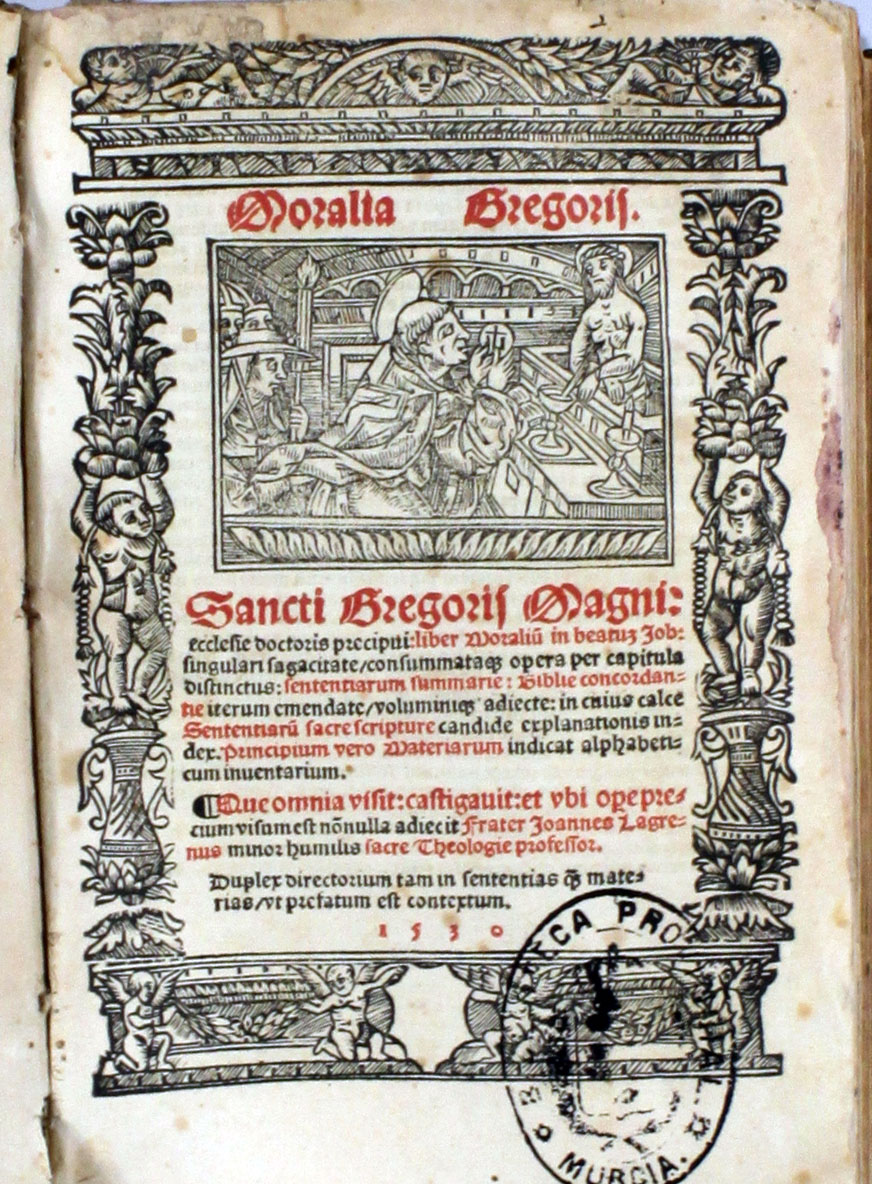 Moralia Gregorij.
Sancti Gregorij Magni:
ecclesie doctoris precipui: liber Moraliū in beatuꝫ Job:
singulari sagacitate/consummataqꝫ opera per capitula
distinctus: sententiarum summarie: Biblie concordan-
tie iterum emendate/voluminiqꝫ adiecte: in cuius calce
Sententiarū sacre scripture candide explanationis in-
dex. Principium vero Materiarum indicat alphabeti-
cum inuentarium.
¶Que omnia visit: castigauit: et vbi ope pre-
cium visum est nōnulla adiecit Frater Joannes Lagre-
nus minor humilis sacre Theologie professor.
Duplex directorium tam in sententias qꝫ mate-
rias/vt prefatum est contextum.
1530
MURCIA.